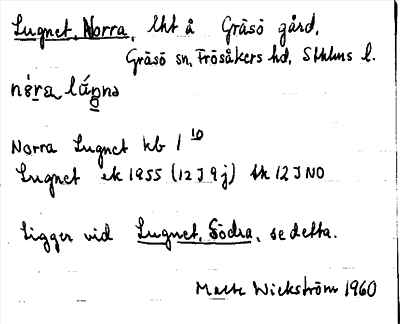 Lugnet, Norra, lht å Gräsö gård,
Gräsö sn, Frösåkers hd, Sthlms l.
Norra Lugnet kb 1 10
Lugnet ek 1955 (12 I 9 j) bk 12 I NO
Ligger vid Lugnet, Södra, se detta.
Wickström 1960